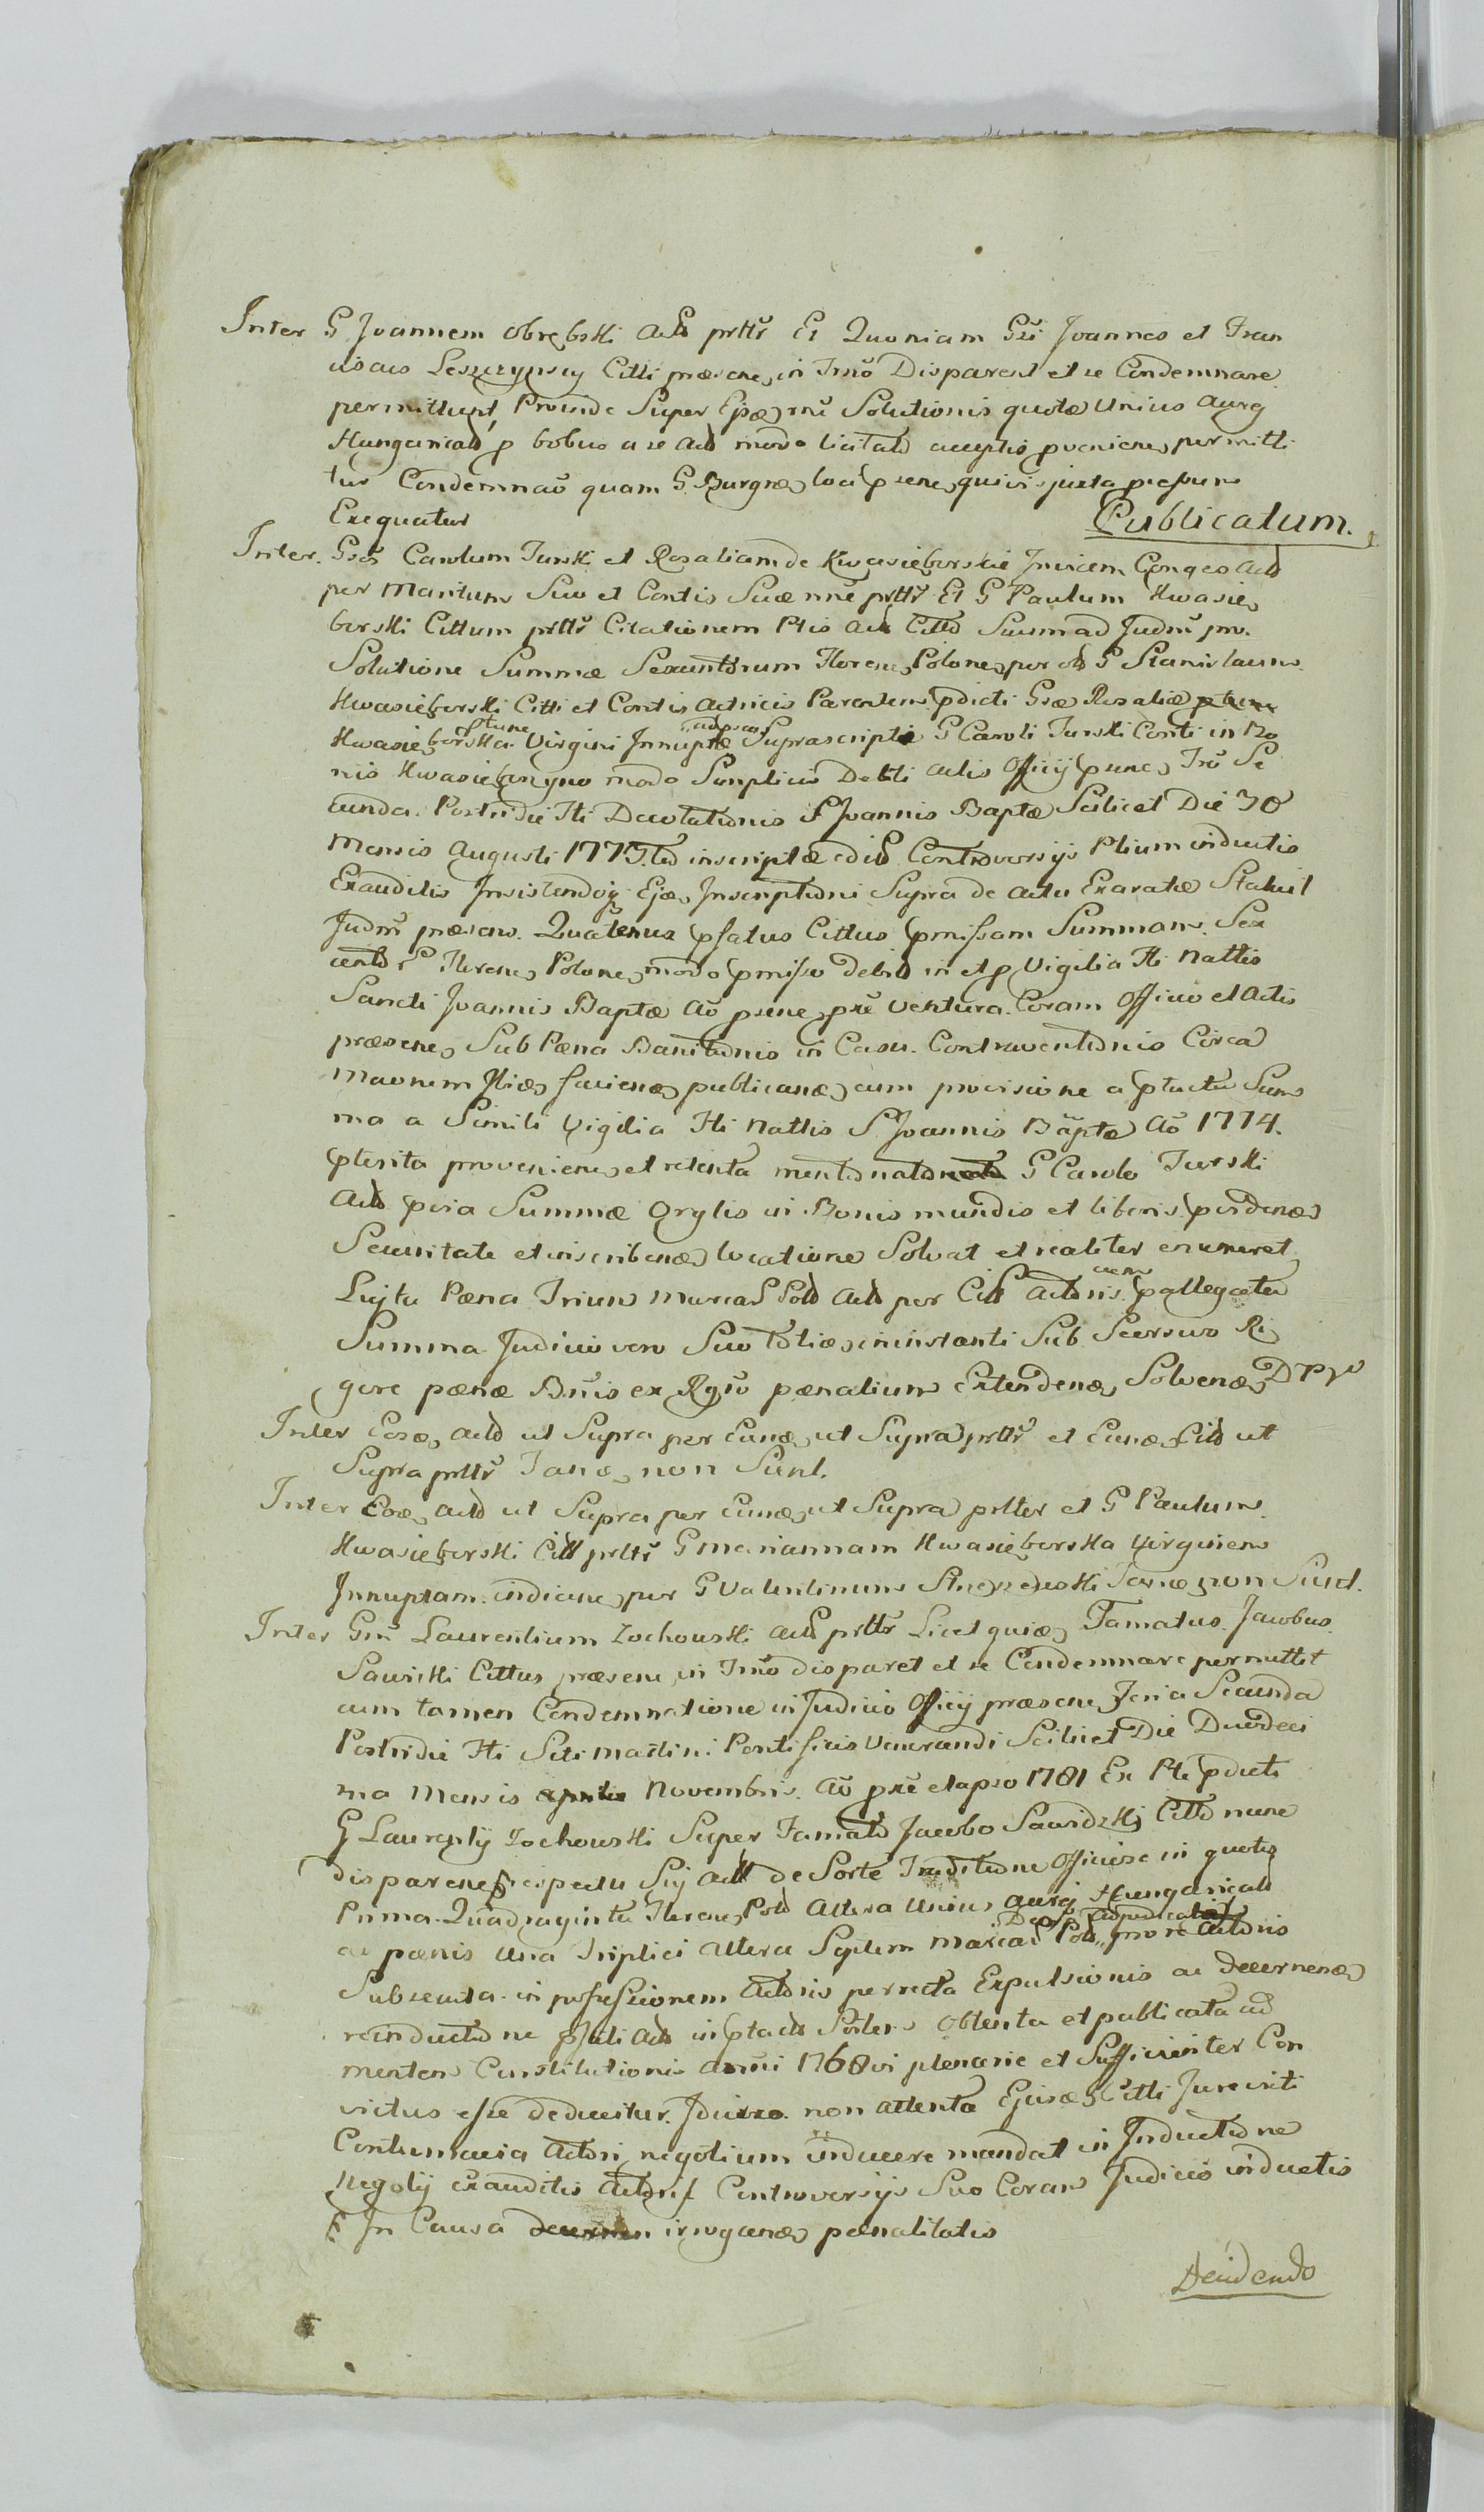 Inter G Joannem Obrębski Actt prttr Et Quoniam Gsi Joannes et Fran
ciscus Leszczynscy Citti præsene, in Tmo Disparent et se Condemnare
permittunt, Proinde Super Ejsæ, rni Solutionis quotæ Unius Aurej
Hungaricatt p bobus a se Actt modo licitatt acceptis pveniene, permitti
tur Condemnaō quam G. Burgræ, loci psene, quivis juxta pressum
Exequatur
Publicatum.
Inter. Gsōs Carolum Turski et Rosaliam de Kwasieborskie Invicem Conges Actt
per Maritum Suu et Contis Suæ nne prttr Et G Paulum Kwasie,
borski Cittum prttr Citationem Ptis Actt Cittō Suum ad Judm pro.
Solutione Summæ Sexcentorum Floreno, Polone, per ott G Stanislaum
Kwasieborski Citti et Contis Actricis Parentem pdicti Gsæ Rosaliæ
Kwasieborska ptunc Virgini Innuptæ Suprascripti G Caroli Turski Conti in Bo
nis Kwasieborzyno modo Simplicis Debiti Actis Officij psene, Fro Se
cunda Postridie Fti Decollationis S Joannis Baptæ Scilicet Die 30
Mensis Augusti 1773. inscriptæ edit Controversijs Ptium inductis
Exauditis Insistendoq Ejsæ, Inscriptioni Supra de Actu Exaratæ Statuit
Judm præsens. Quatenus psatus Cittus pmissam Summam Sex
centor Florene, Polone, modo pmisso debitt in et p Vigilia Fti Nattis
Sancti Joannis Baptæ Aō psene, pxe Ventura. Coram Officio et Actis
præsene, Sub Pæna Banitionis in Casu Contraventionis Circa
Maonem Ftiæ, faciene, publicane, cum provisione a ptacta Sum
ma a Simili Vigilia Fti Nattis S Joannis Baptæ Aō 1774.
pterita proveniene, et retenta mentionato G Carolo Turski
Actt pvia Summæ Orglis in Bonis mundis et liberis pvidenæ,
Securitate et inscribenæ, locatione Solvat et realiter enumeret,
Lujta Pæna Trium Marcar Poltt Actt per Citt Actoris cum pallegata
Summa Judicio vero Suo Totiæ, in instanti Sub Seersuo Ri,
gore pænæ Bnis ex Rgro pænalium Extendenæ, Solvenæ, D P P
Inter Eosæ, Actt ut Supra per Eunæ, ut Supra prttr et Eunæ, Citt ut
Supra prttr Tanæ, non Sunt.
Inter Eosæ, Actt ut Supra per Eunæ, ut Supra prtter et G Paulum
Kwasieborski Citt prttr G Mariannam Kwasieborska Virginem
Innuptam indicene, per G Valentinum Tanæ, non Sunt.
Inter Gm Laurentium Zochowski Actt prttr Licet quiæ, Famatus Jacobus
Sawicki Cittus præsene, in Tmo disparet et se Condemnare permittit
cum tamen Condemnatione in Judicio Officij præsene, Feria Secunda
Postridie Fti Scti Martini Pontificis Venerandi Scilicet Die Duodeci
ma Mensis Novembris Aō pxe elapso 1781 Ex Pte pdicti
G Laurentij Zochowski Super Famatō Jacobo Sawickij Cittō nunc
disparene, respectu Sij Actt de Sorte Traditione Officiose in quotis
Prima Quadraginta Florene, Poltt Altera Unius Aurej Hungaricatt
ac pænis Una Triplici Altera Septem Marcar Poltt, pro re Actoris
Subsecuta in possessionem Actoris perrecta Expulsionis ac Decernenæ,
reinductione psati Actt in ptactt Sortem Obtenta et publicata ad
mentem Constitutionis Anni 1768vi plenarie et Sufficienter Con
victus esse deducitur. Idcirco non attenta Ejusæ, Citti Jurevicti
Contumacia Actori negotium inducere mandat in Inductione
Negotij exauditis Actoris Controversijs Suo Coram Judicio inductis
In Causa irrogenæ, pænalitatis
Decidendo